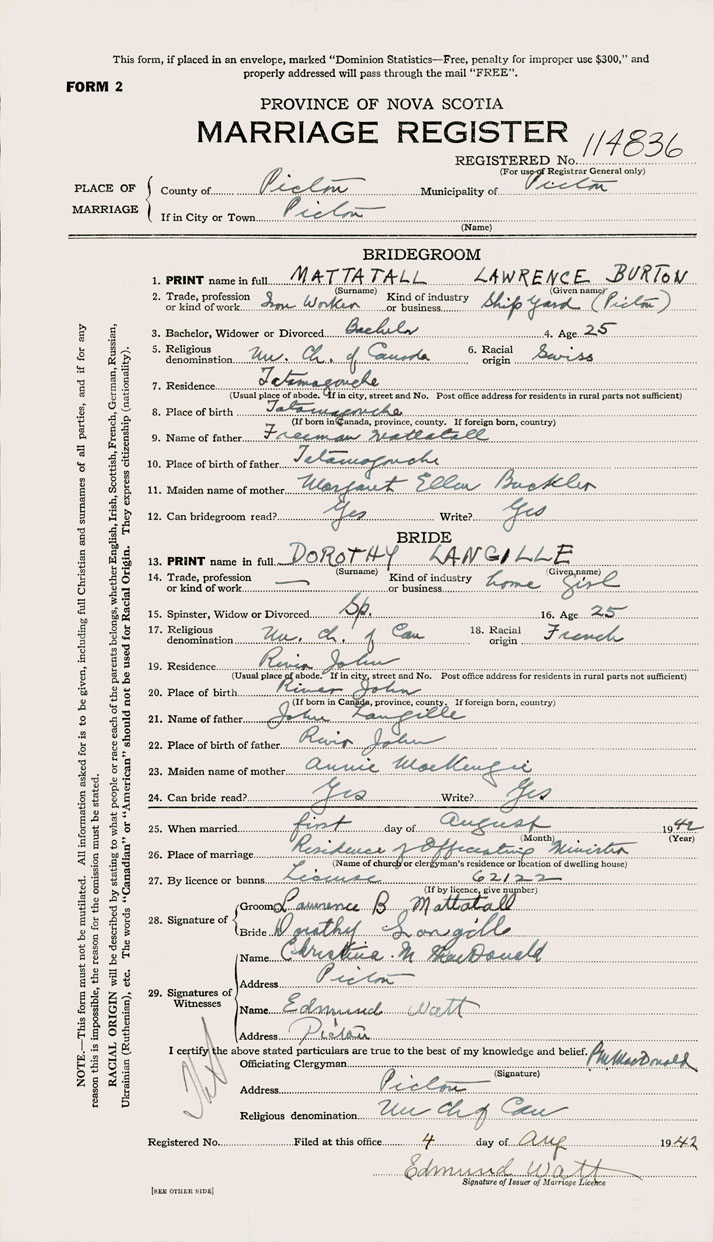 This form, if placed in an envelope, marked "Dominion Statistics—Free, penalty for improper use $300," and
properly addressed will pass through the mail "FREE".
FORM 2
PROVINCE OF NOVA SCOTIA
MARRIAGE REGISTER
REGISTERED No. 114836
(For use of Registrar General only)
PLACE OF MARRIAGE
County of Pictou Municipality of Pictou
If in City or Town Pictou
(Name)
BRIDEGROOM
1. PRINT name in full MATTATALL LAWRENCE BURTON
(Surname) (Given name)
2. Trade, profession or kind of work Iron Worker Kind of industry or business Ship Yard (Pictou)
3. Bachelor, Widower or Divorced Bachelor 4. Age 25
5. Religious denomination Un. Ch. of Canada 6. Racial origin Swiss
7. Residence Tatamagouche
(Usual place of abode. If in city, street and No. Post office address for residents in rural parts not sufficient)
8. Place of birth Tatamagouche
(If born in Canada, province, county. If foreign born, country)
9. Name of father Freeman Mattatall
10. Place of birth of father Tatamagouche
11. Maiden name of mother Margaret Ellen Buckler
12. Can bridegroom read? Yes Write? Yes
BRIDE
13. PRINT name in full DOROTHY LANGILLE
(Surname) (Given name)
14. Trade, profession or kind of work — Kind of industry or business home girl
15. Spinster, Widow or Divorced Sp. 16. Age 25
17. Religious denomination Un. Ch. of Can 18. Racial origin French
19. Residence River John
(Usual place of abode. If in city, street and No. Post office address for residents in rural parts not sufficient)
20. Place of birth River John
(If born in Canada, province, county. If foreign born, country)
21. Name of father John Langille
22. Place of birth of father River John
23. Maiden name of mother Annie MacKenzie
24. Can bride read? Yes Write? Yes
25. When married first day of August 1942
(Month) (Year)
26. Place of marriage Residence of Officiating Minister
(Name of church or clergyman's residence or location of dwelling house)
27. By licence or banns License 62122
(If by licence, give number)
28. Signature of
Groom Lawrence B Mattatall
Bride Dorothy Langille
29. Signatures of Witnesses
Name Christina M MacDonald
Address Pictou
Name Edmund Watt
Address Pictou
I certify the above stated particulars are true to the best of my knowledge and belief.
Officiating Clergyman MacDonald
(Signature)
Address Pictou
Religious denomination Un Ch of Can
Registered No. Filed at this office 4 day of Aug 1942
Edmund Watt
Signature of Issuer of Marriage Licence
[SEE OTHER SIDE]
NOTE.—This form must not be mutilated. All information asked for is to be given, including full Christian and surnames of all parties, and if for any
reason this is impossible, the reason for the omission must be stated.
RACIAL ORIGIN will be described by stating to what people or race each of the parents belongs, whether English, Irish, Scottish, French, German, Russian,
Ukrainian (Ruthenian), etc. The words "Canadian" or "American" should not be used for Racial Origin. They express citizenship (nationality).